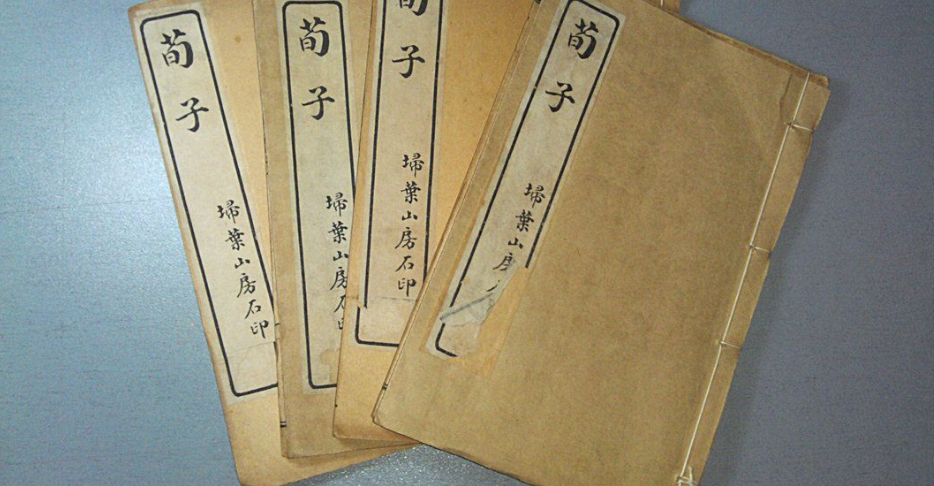 荀子
埽葉山房石印
荀子
埽葉山房石
荀子
埽葉山房石印
荀子
埽葉山房